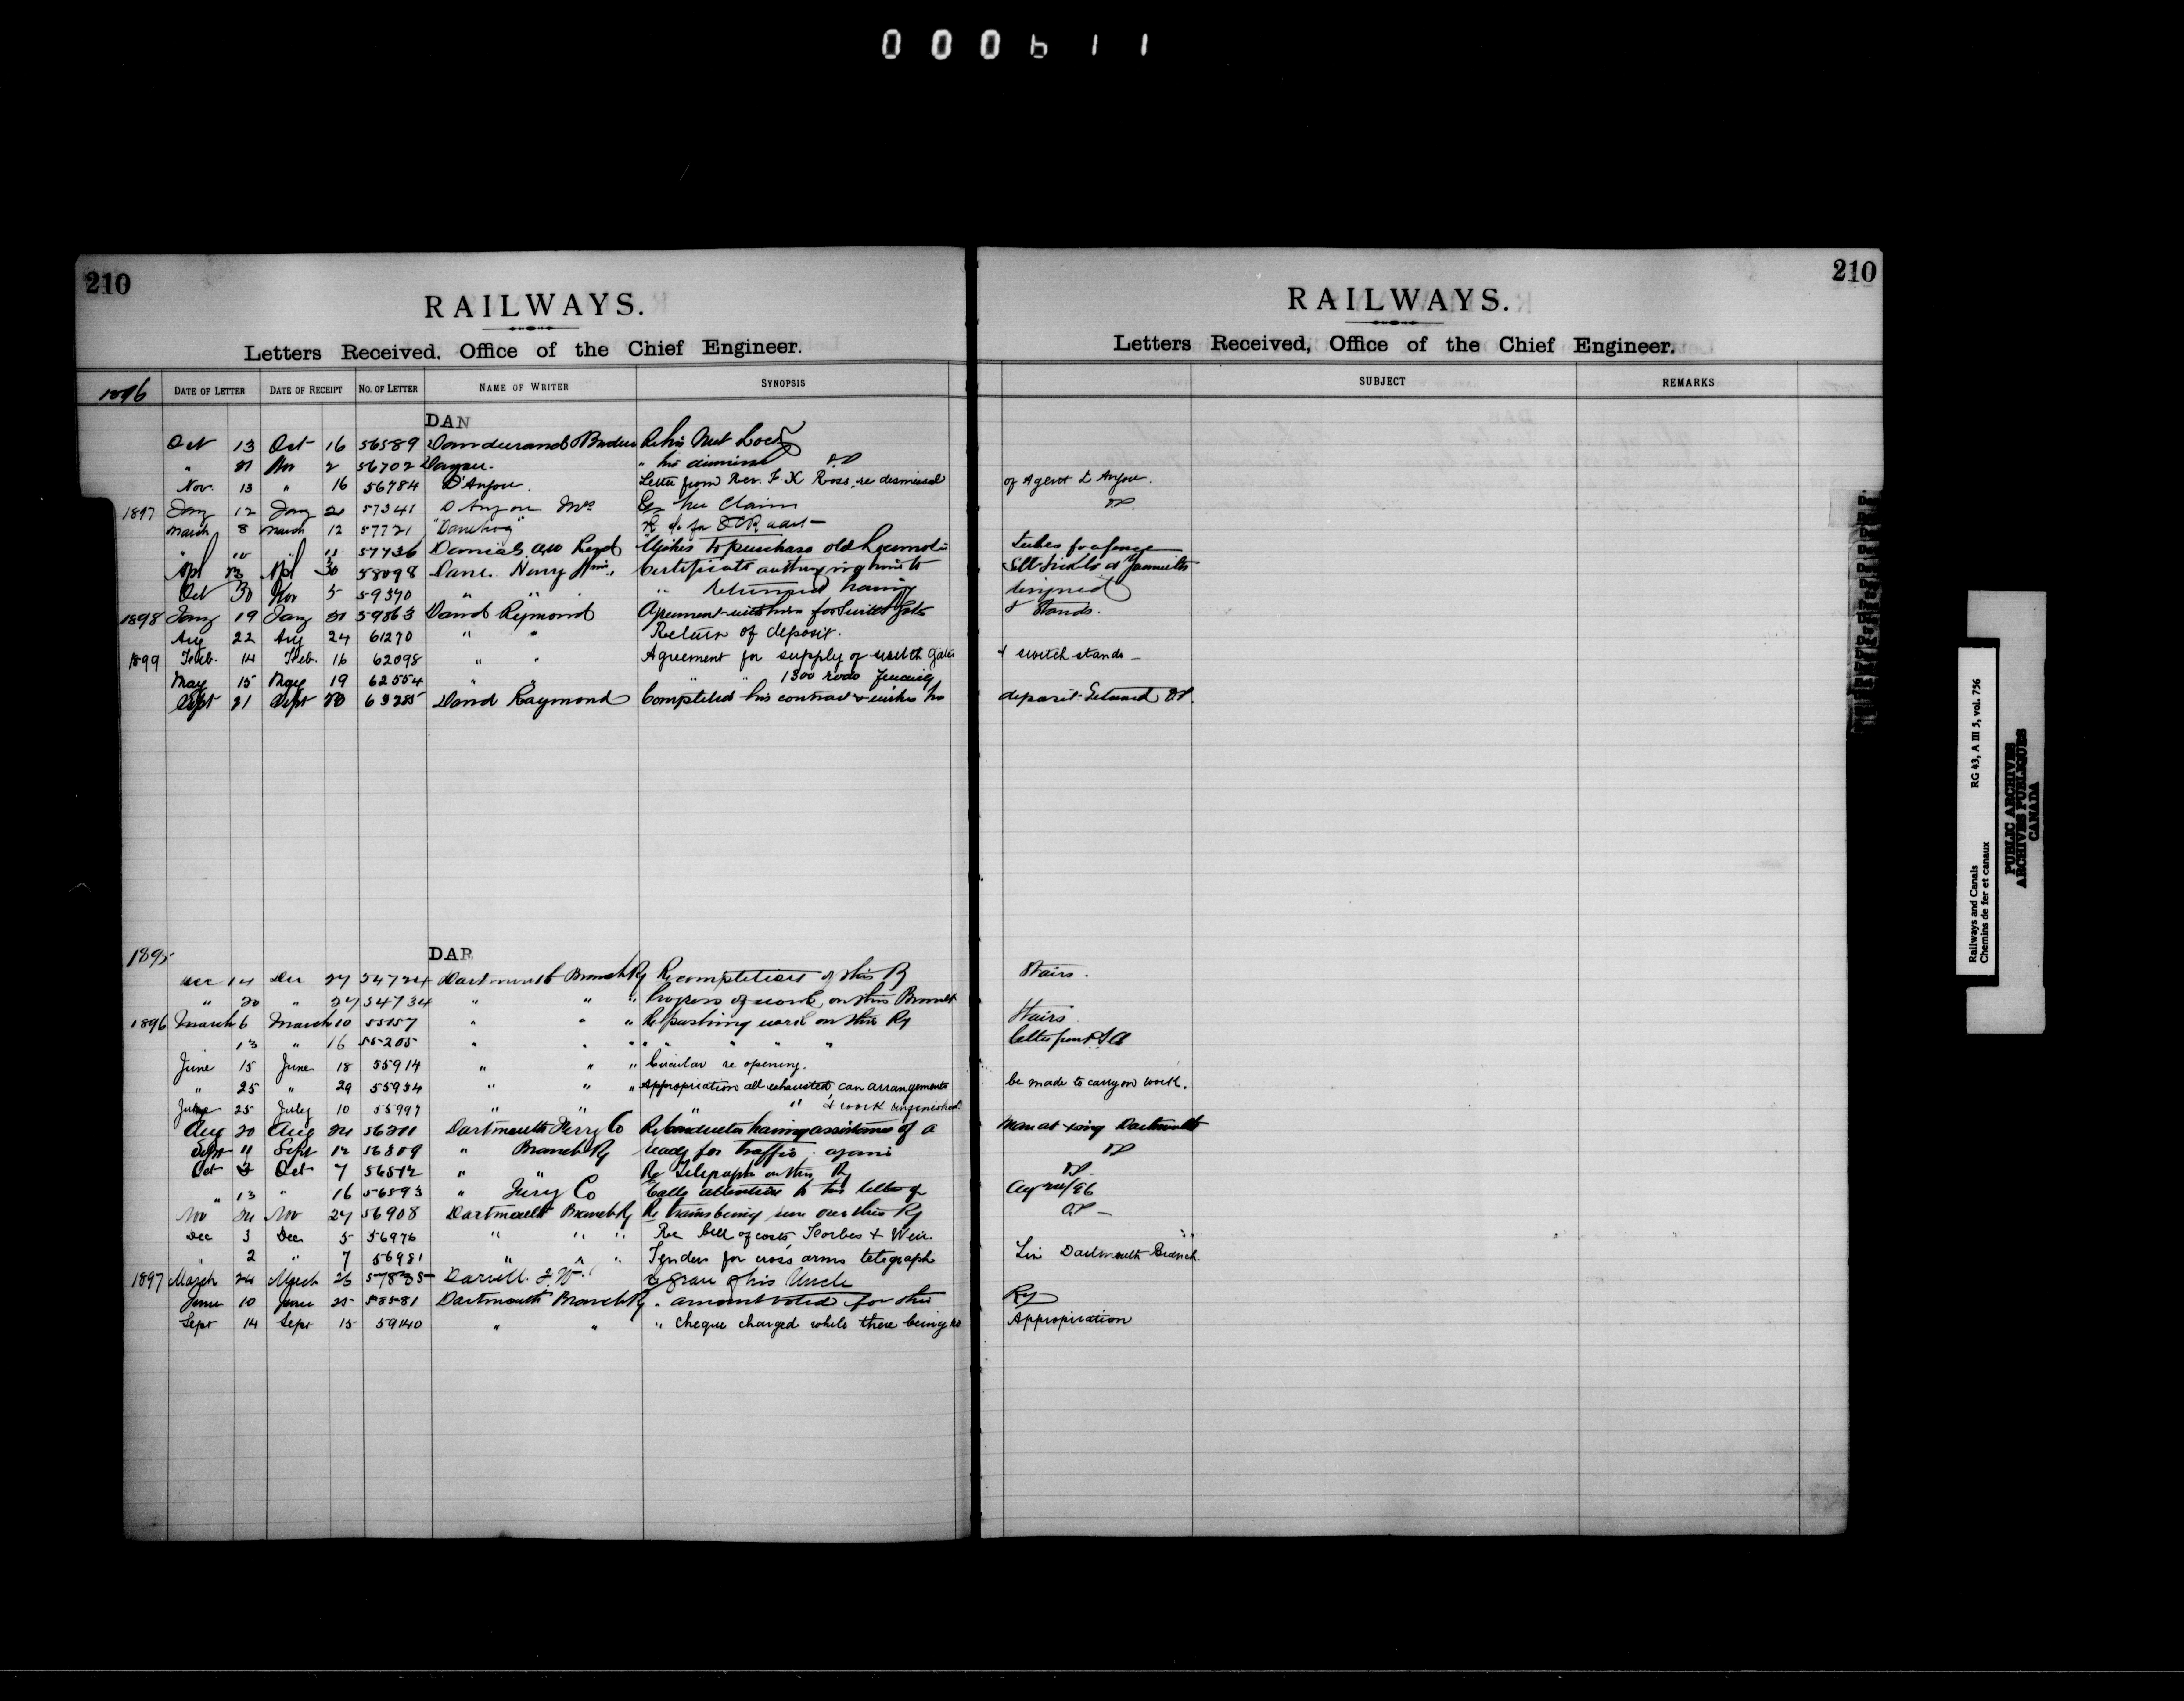 000611
210
RAILWAYS.
Letters Received, Office of the Chief Engineer.
1896 DATE OF LETTER DATE OF RECEIPT No. OF LETTER NAME OF WRITER SYNOPSIS
DAN
Oct 13 Oct 16 56589 Dandurand Re his Nut Lock
" 31 Nov 2 56702 " his dismissal
Nov. 13 " 16 56784 D'Anjou. Letter from Rev. F. X Ross, re dismissal
1897 Jany 12 Jany 20 57341 D Anjou Mrs Re her Claim
March 8 March 12 57721
57736 Daniels Wishes to purchase old
Apl Apl 30 58098 Dane. Henry Certificate
Oct 30 Nov 5 59390 " " " returned having
1898 Jany 19 Jany 59863 David Raymond Agreement with him for Switch Gates
Aug 22 Aug 24 61270 " " Return of deposit.
1899 Feb. 14 Feb. 16 62098 " " Agreement for supply of switch gates
May 15 May 19 62554 " " " " 1300 rods fencing
Sept 21 Sept 63285 David Raymond Completed his contract & wishes his
1895 DAR
Dec 14 Dec 27 54724 Dartmouth Branch Ry Re completion of this R
" 20 " 27 54734 " " " Progress of work on this Branch
1896 March 6 March 10 55157 " " " Re pushing work on this Ry
" 13 " 16 55205 " " " " " " "
June 15 June 18 55914 " " " Circular re opening.
" 25 " 29 55984 " " " Appropriation all exhausted can arrangements
25 July 10 55997 " " " " & work unfinished.
Aug 20 Aug 24 56211 Dartmouth Ferry Co Re Conductor having assistance of a
Sept 11 Sept 12 56309 " Branch Ry ready for traffic
Oct Oct 7 56512 " " Re Telegraph on this Ry
" 13 " 16 56593 " Ferry Co Calls attention to his letter of
Nov 24 Nov 27 56908 Dartmouth Branch Ry Re trains being run over this Ry
Dec 3 Dec 5 56976 " " " Re bill of costs, Forbes & Weir.
" 2 " 7 56981 " " " Tenders for cross arms telegraph
1897 March 24 March 26 57835 Darvell. J. W. Re grave of his Uncle
June 10 June 25 58581 Dartmouth Branch Ry " amount voted for this
Sept 14 Sept 15 59140 " " " Cheque charged while there being no
210
RAILWAYS.
Letters Received, Office of the Chief Engineer.
SUBJECT REMARKS
of Agent D Anjou.
Tubes for a fence
Sell tickets at
& Stands.
& switch stands
deposit returned
Stairs.
Stairs
be made to carry on work.
Man at Dartmouth
Aug 20/96
Line Dartmouth Branch
Ry
Appropriation
Railways and Canals RG 43, A III 5, vol. 756
Chemins de fer et canaux
PUBLIC ARCHIVES
ARCHIVES PUBLIQUES
CANADA